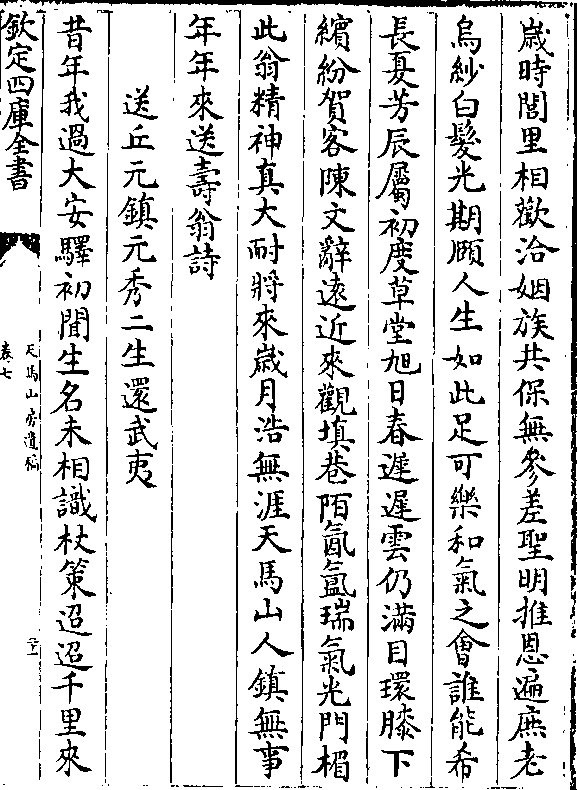 歲時閭里相歡洽姻族共保無參差聖明推恩遍庶老
烏紗白髮光期頤人生如此足可樂和氣之會誰能希
長夏芳辰屬初度草堂旭日春遲遲雲仍滿目環膝下
繽紛賀客陳文辭遠近來觀填巷陌氤氳瑞氣光門楣
此翁精神真大耐將來歲月浩無涯天馬山人鎮無事
年年來送壽翁詩
送丘元鎮元秀二生還武夷
昔年我過大安驛初聞生名未相識杖策迢迢千里來
欽定四庫全書
天馬山房遺稿
卷七